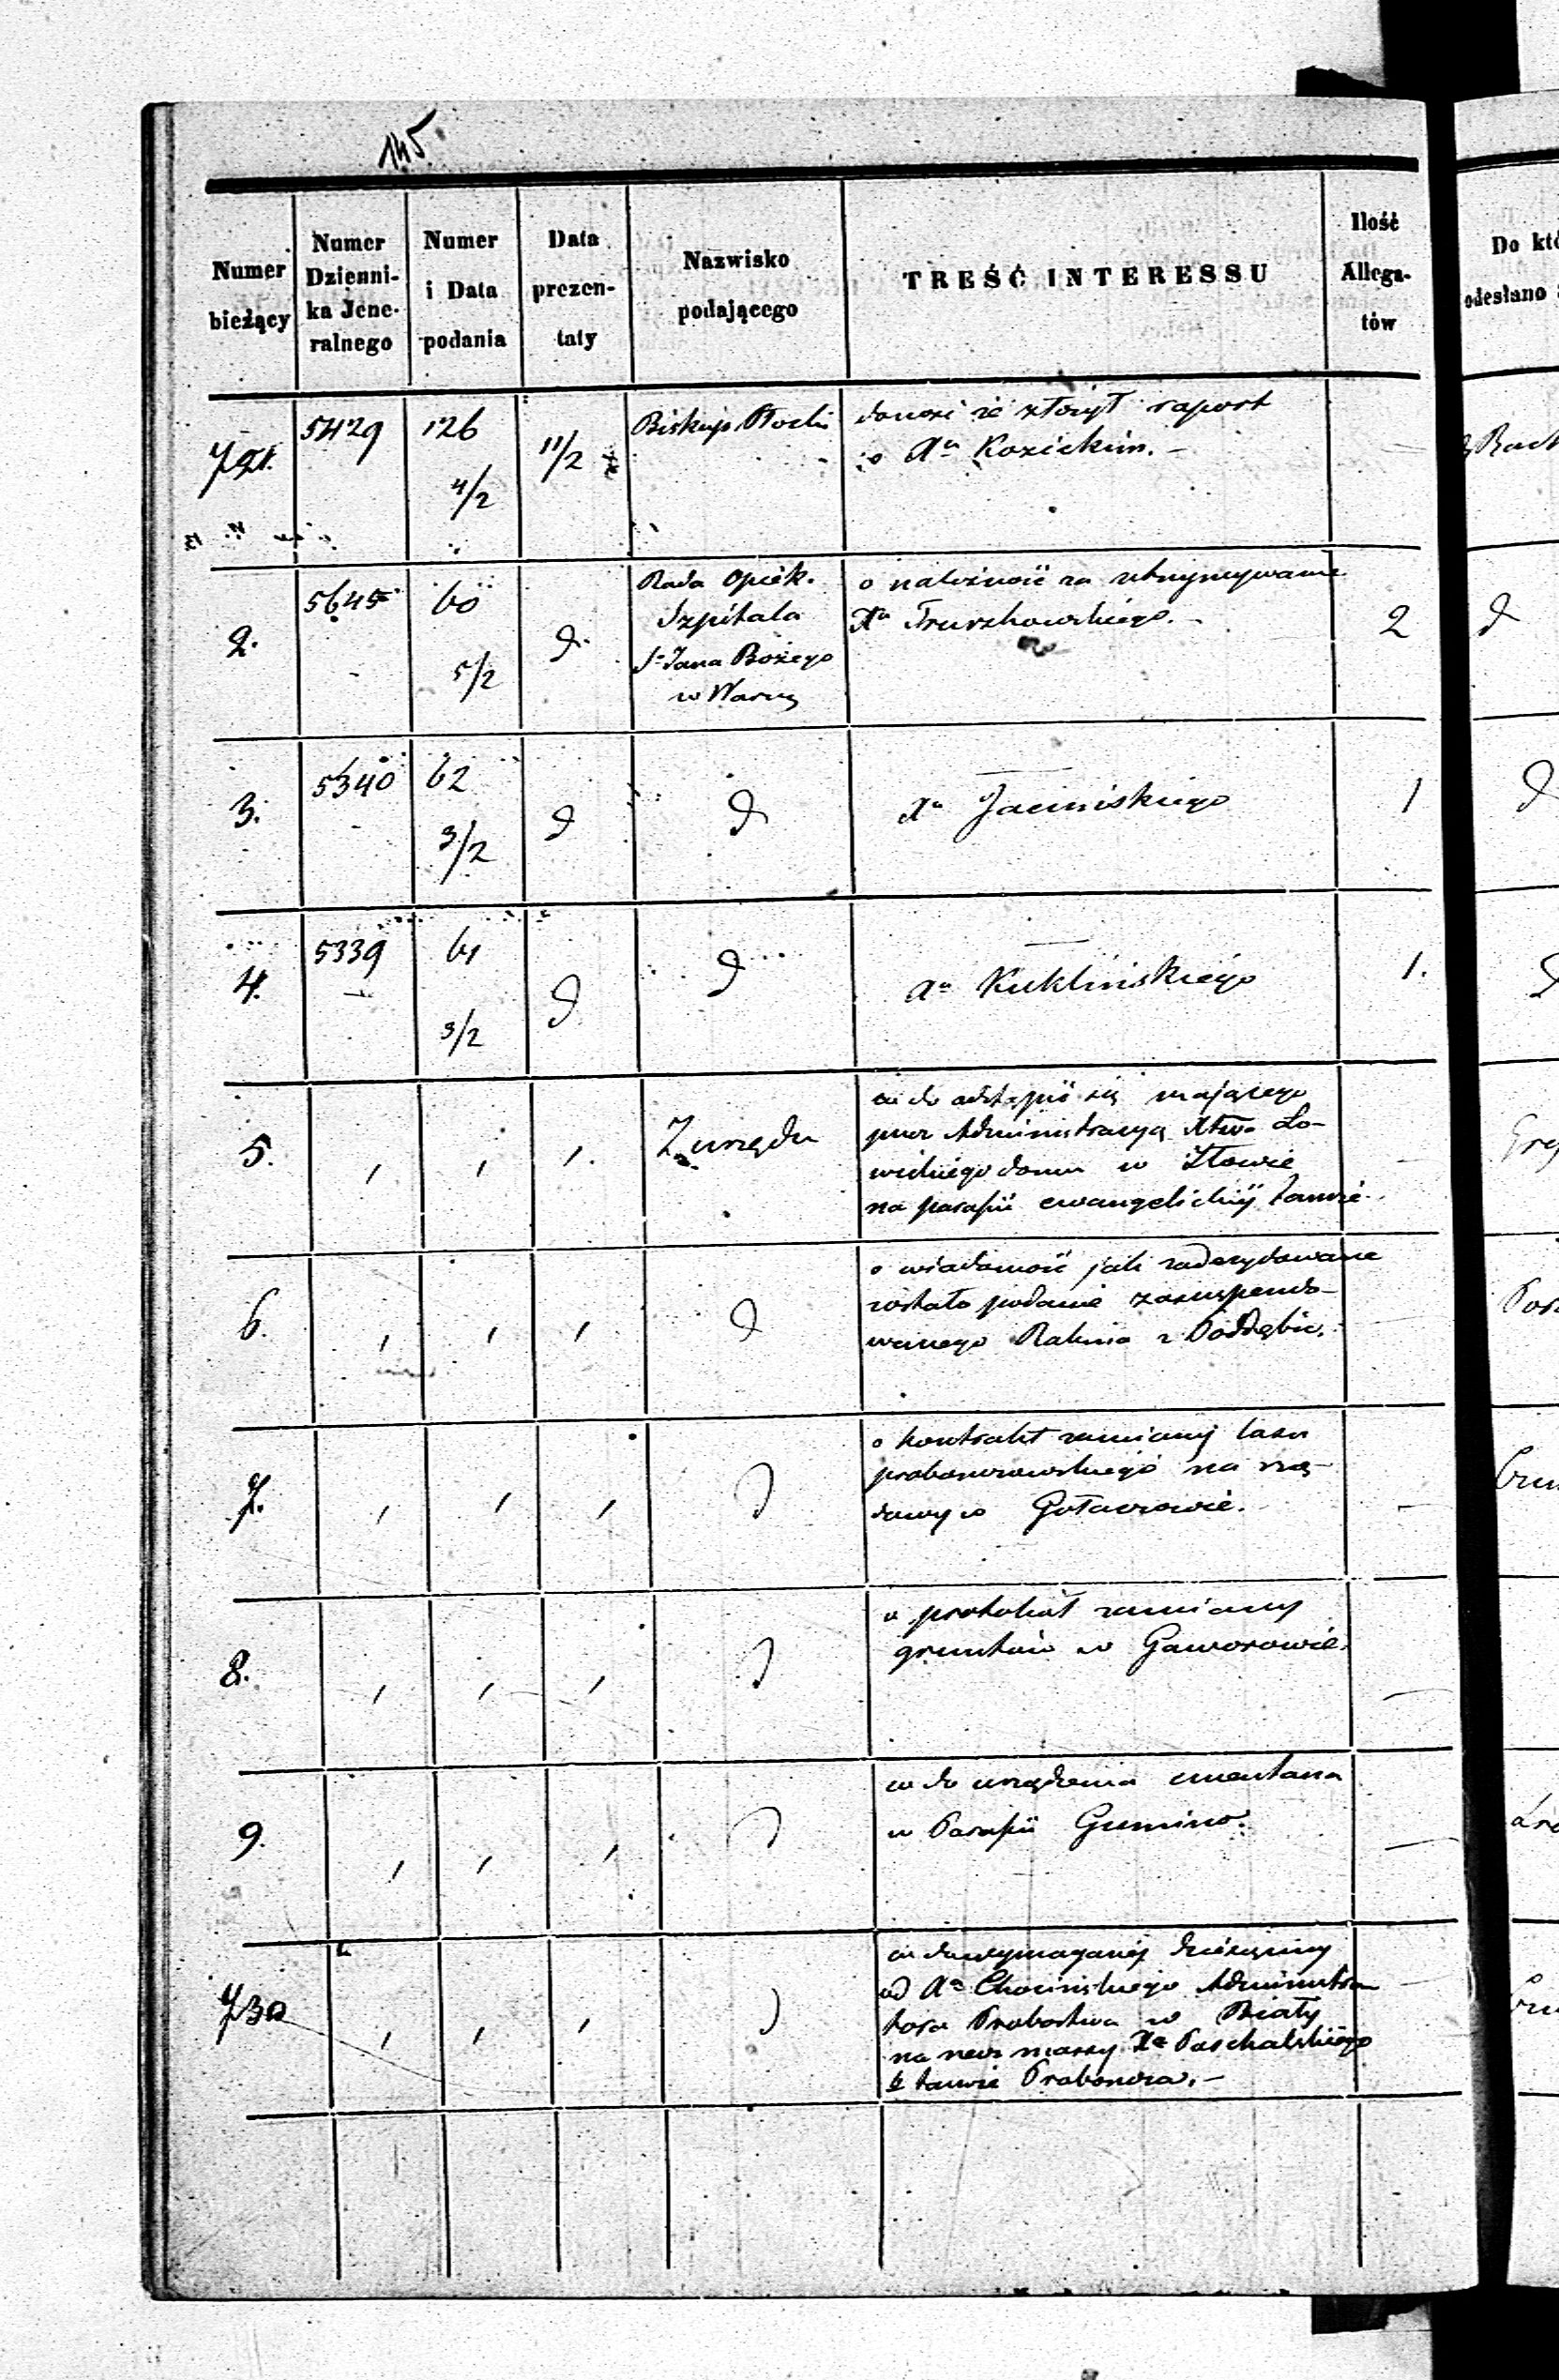 145
Numer bieżący
Numer Dzienni-ka Jene-ralnego
Numer i Data podania
Data prezen-taty
Nazwisko podającego
TREŚĆ INTERESSU
Ilość Allega-tów
Do któ
odesłano
721.
5429
126
4/2
11/2
Biskup Płocki
donosi że złożył raport
o Xu Kozickim. -
2.
5645
60
5/2
d.
Rada Opiek.
Szpitala
S. Jana Bożego
w Warsz
o należność za utrzymywanie
Xa Truszkowskiego. -
2
d
3.
5340
62
3/2
d
d
Xa Jaciniskiego
1
d
4.
5339
61
3/2
d
d
Xa Kuklińskiego
1.
d
5.
Z urzędu
co do odstąpić się mającego
przez Administracyą Xtwa Ło-
wickiego domu w Iłowie
na parafii ewangelickiej tamże.
6.
d
o wiadomość jak zadecydowane
zostało podanie zasuspendo-
wanego Rabina z Poddębic.
7.
d
o kontrakt zamiany lasu
proboszczowskiego na rzą-
dowy w
8.
d
o protokół zamiany
gruntów w Gaworowie.
9.
d
co do urządzenia cmentarza
w Parafii Gumino.
730
d
co do wymaganej dziesięciny
od Xa Chocińskiego Administra
tora Probostwa w Biały
na rzecz massy Xa Paschalskiego
b. tamże Proboszcza. -